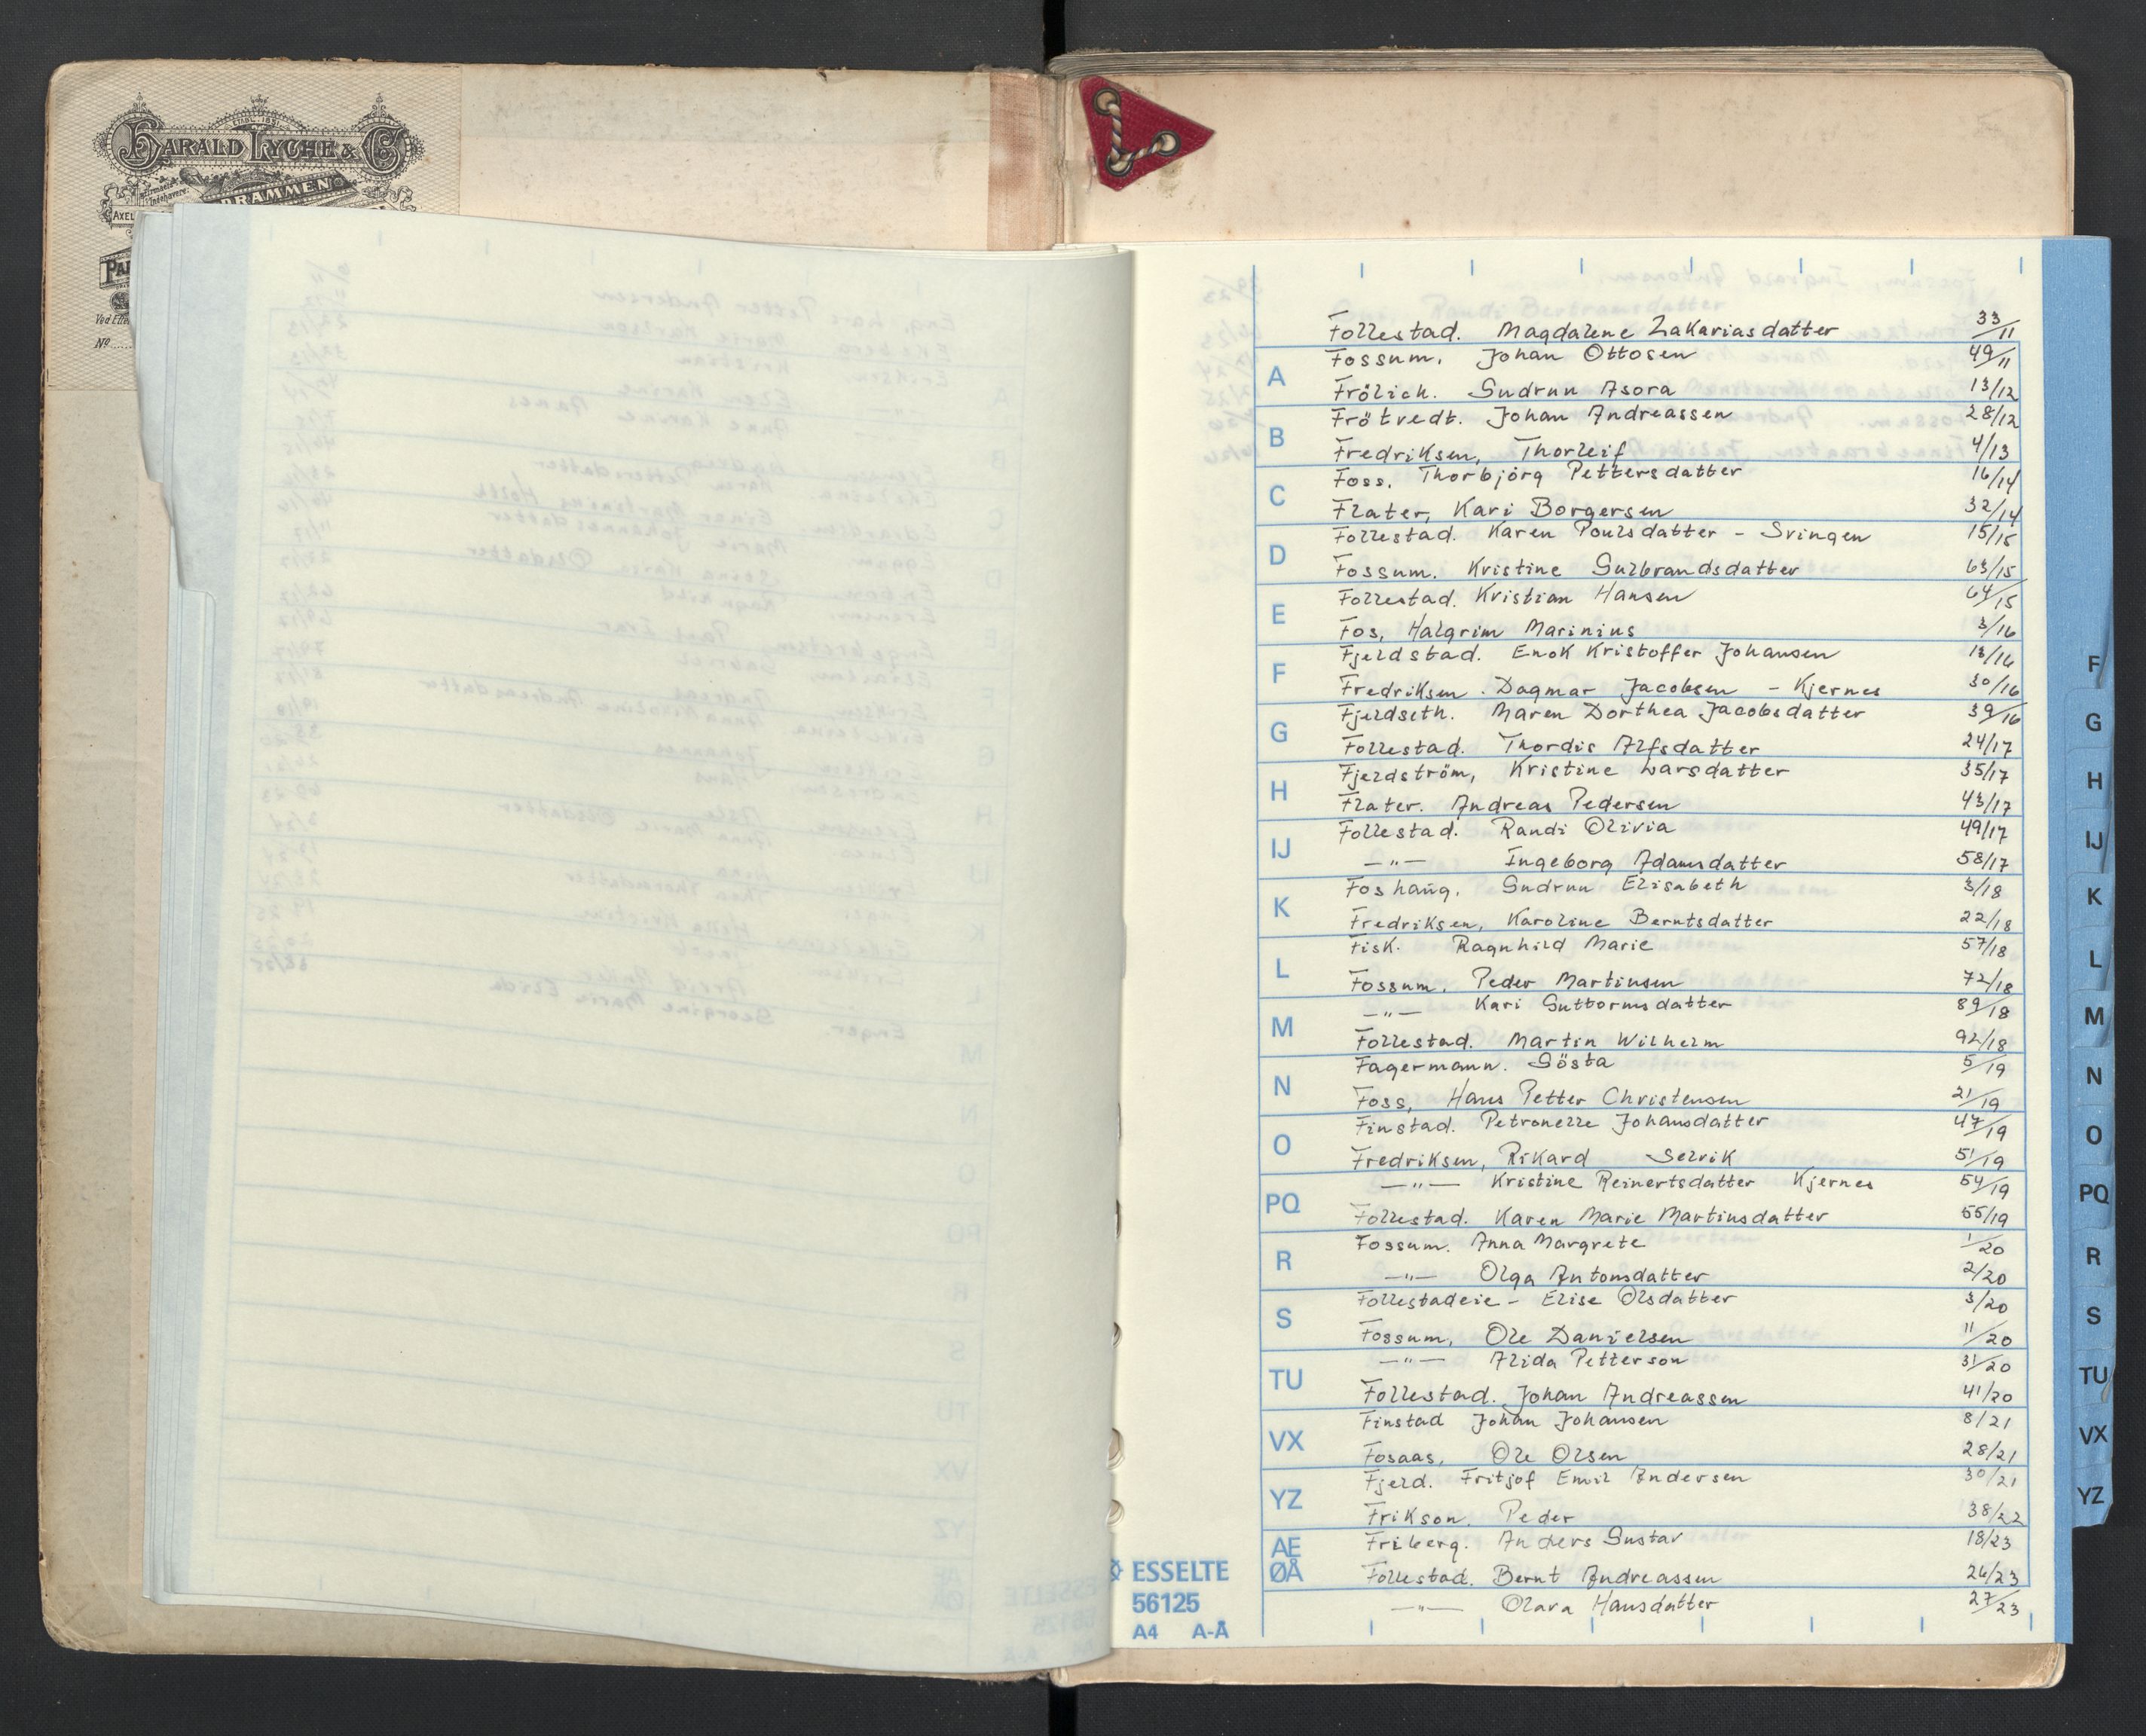 ETABL. 1891
HARALD LYCHE & Co
DRAMMEN
AXEL
Nº
Follestad. Magdalene Zakariasdatter 33/11
Fossum. Johan Ottosen 49/11
A
Frölich. Gudrun Asora 13/12
Frötvedt. Johan Andreassen 28/12
B
Fredriksen, Thorleif 4/13
Foss. Thorbjörg Pettersdatter 16/14
C
Flater, Kari Borgersen 32/14
Follestad. Karen Poulsdatter - Svingen 15/15
D
Fossum. Kristine Gulbrandsdatter 63/15
Follestad. Kristian Hansen 64/15
E
Fos, Halgrim Marinius 3/16
Fjeldstad. Enok Kristoffer Johansen 13/16
F
Fredriksen. Dagmar Jacobsen - Kjernes 30/16
Fjeldseth. Maren Dorthea Jacobsdatter 39/16
G
Follestad. Thordis Alfsdatter 24/17
Fjeldström, Kristine Larsdatter 35/17
H
Flater. Andreas Pedersen 43/17
Follestad. Randi Olivia 49/17
IJ
—"— Ingeborg Adamsdatter 58/17
Foshaug. Gudrun Elisabeth 3/18
K
Fredriksen, Karoline Berntsdatter 22/18
Fisk. Ragnhild Marie 57/18
L
Fossum. Peder Martinsen 72/18
—"— Kari Guttormsdatter 89/18
M
Follestad. Martin Wilhelm 92/18
Fagermann. Gösta 5/19
N
Foss, Hans Petter Christensen 21/19
Finstad. Petronelle Johansdatter 47/19
O
Fredriksen, Rikard Selvik 51/19
—"— Kristine Reinertsdatter Kjernes 54/19
PQ
Follestad. Karen Marie Martinsdatter 55/19
Fossum. Anna Margrete 1/20
R
—"— Olga Antonsdatter 2/20
Follestadeie - Elise Olsdatter 3/20
S
Fossum, Ole Danielsen 11/20
—"— Alida Petterson 31/20
TU
Follestad. Johan Andreassen 41/20
Finstad Johan Johansen 8/21
VX
Fosaas. Ole Olsen 28/21
Fjeld. Fritjof Emil Andersen 30/21
YZ
Frikson. Peder 38/22
Friberg. Anders Gustav 18/23
AE
ØÅ
Follestad. Bernt Andreassen 26/23
—"— Olava Hansdatter 27/23
ESSELTE
56125
A4 A-Å
F
G
H
IJ
K
L
M
N
O
PQ
R
S
TU
VX
YZ